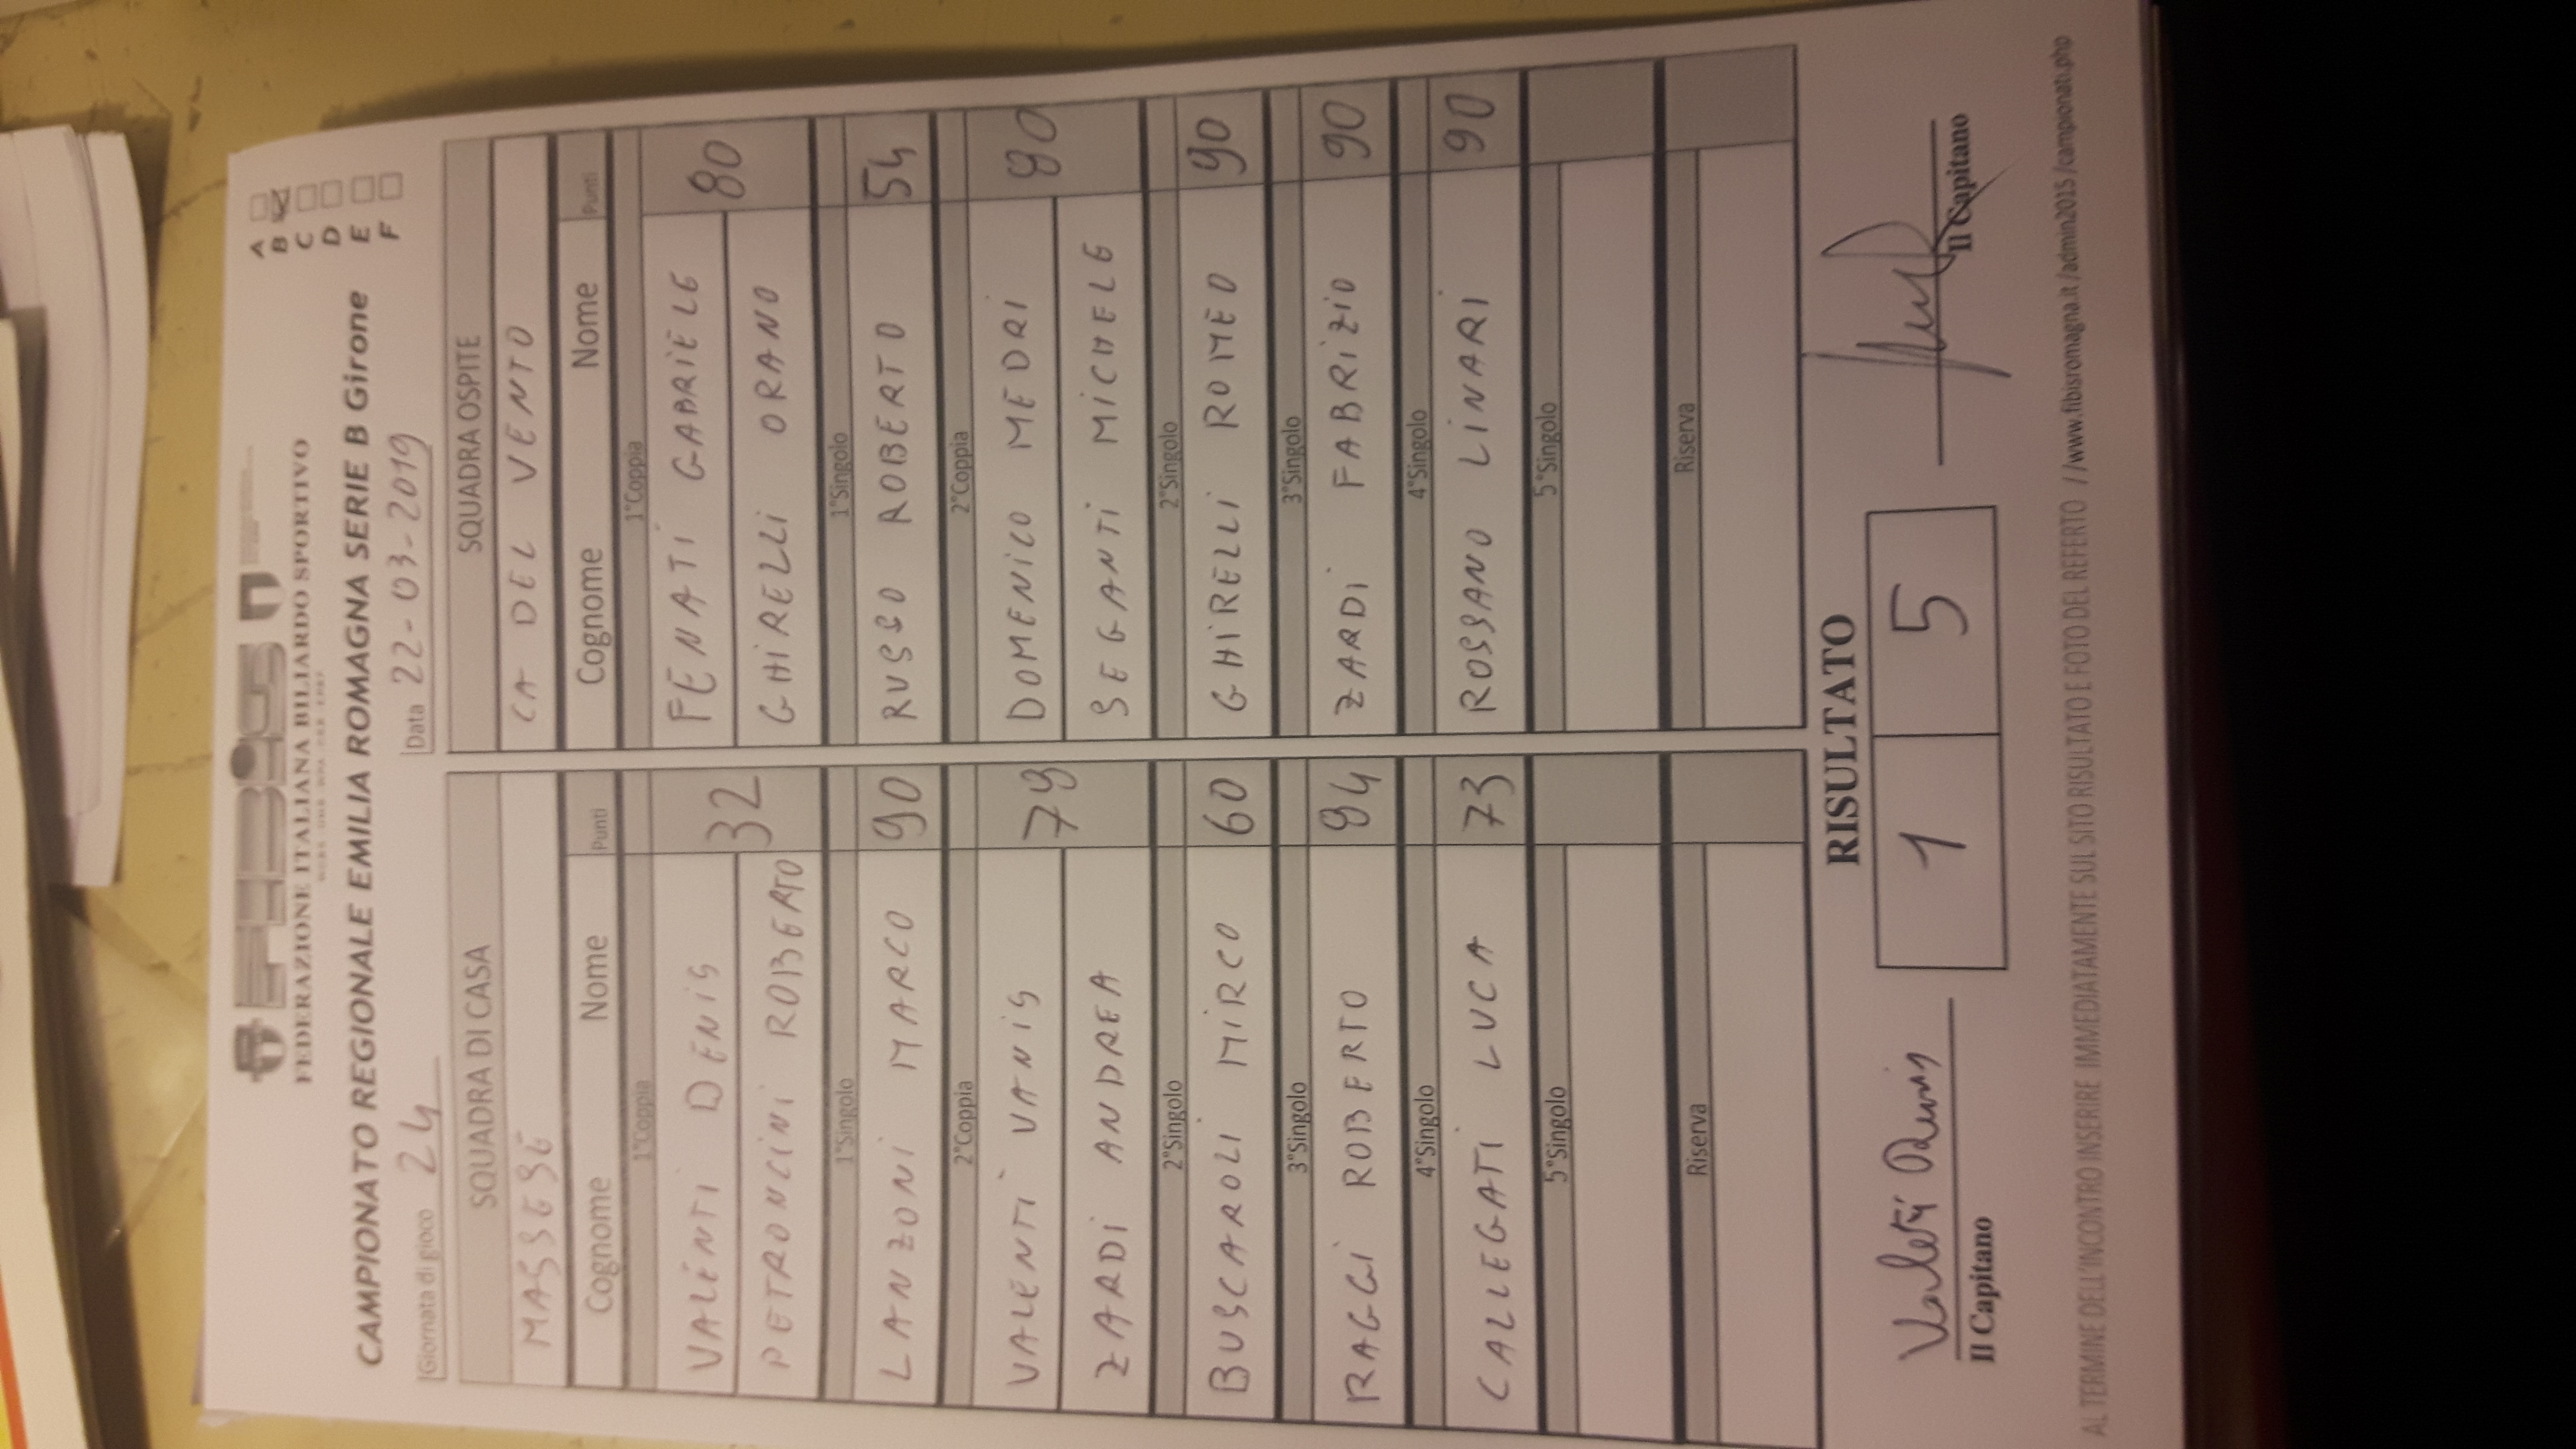 FIBiS
FEDERAZIONE ITALIANA BILIARDO SPORTIVO
CAMPIONATO REGIONALE EMILIA ROMAGNA SERIE B Girone
A
B
C
D
E
F
Giornata di gioco 24 Data 22-03-2019
SQUADRA DI CASA SQUADRA OSPITE
MASSESE CA DEL VENTO
Cognome Nome Punti Cognome Nome Punti
1°Coppia 1°Coppia
VALENTI DENIS 32 FENATI GABRIELE 80
PETRONCINI ROBERTO GHIRELLI ORANO
1°Singolo 1°Singolo
LANZONI MARCO 90 RUSSO ROBERTO 54
2°Coppia 2°Coppia
VALENTI VANIS 79 DOMENICO MEDRI 80
ZARDI ANDREA SEGANTI MICHELE
2°Singolo 2°Singolo
BUSCAROLI MIRCO 60 GHIRELLI ROMEO 90
3°Singolo 3°Singolo
RAGGI ROBERTO 84 ZARDI FABRIZIO 90
4°Singolo 4°Singolo
CALLEGATI LUCA 73 ROSSANO LINARI 90
5°Singolo 5°Singolo
Riserva Riserva
RISULTATO
Valenti Denis 1 5
Il Capitano Il Capitano
AL TERMINE DELL'INCONTRO INSERIRE IMMEDIATAMENTE SUL SITO RISULTATO E FOTO DEL REFERTO //www.fibisromagna.it/admin2015/campionati.php